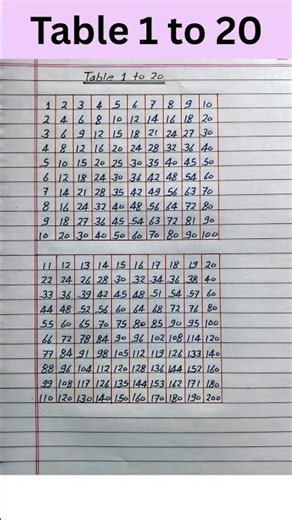 Table 1 to 20
Table 1 to 20
1 2 3 4 5 6 7 8 9 10
2 4 6 8 10 12 14 16 18 20
3 6 9 12 15 18 21 24 27 30
4 8 12 16 20 24 28 32 36 40
5 10 15 20 25 30 35 40 45 50
6 12 18 24 30 36 42 48 54 60
7 14 21 28 35 42 49 56 63 70
8 16 24 32 40 48 56 64 72 80
9 18 27 36 45 54 63 72 81 90
10 20 30 40 50 60 70 80 90 100
11 12 13 14 15 16 17 18 19 20
22 24 26 28 30 32 34 36 38 40
33 36 39 42 45 48 51 54 57 60
44 48 52 56 60 64 68 72 76 80
55 60 65 70 75 80 85 90 95 100
66 72 78 84 90 96 102 108 114 120
77 84 91 98 105 112 119 126 133 140
88 96 104 112 120 128 136 144 152 160
99 108 117 126 135 144 153 162 171 180
110 120 130 140 150 160 170 180 190 200